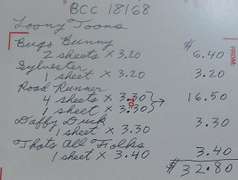 BCC 18168
Loony Toons
Bugs Bunny $
2 sheets x 3.20 6.40
Sylvester
1 sheet x 3.20 3.20
Road Runner
4 sheets x 3.30
1 sheet x 3.30 16.50
Daffy Duck
1 sheet x 3.30 3.30
Thats All Folks
1 sheet x 3.40 3.40
$32.80